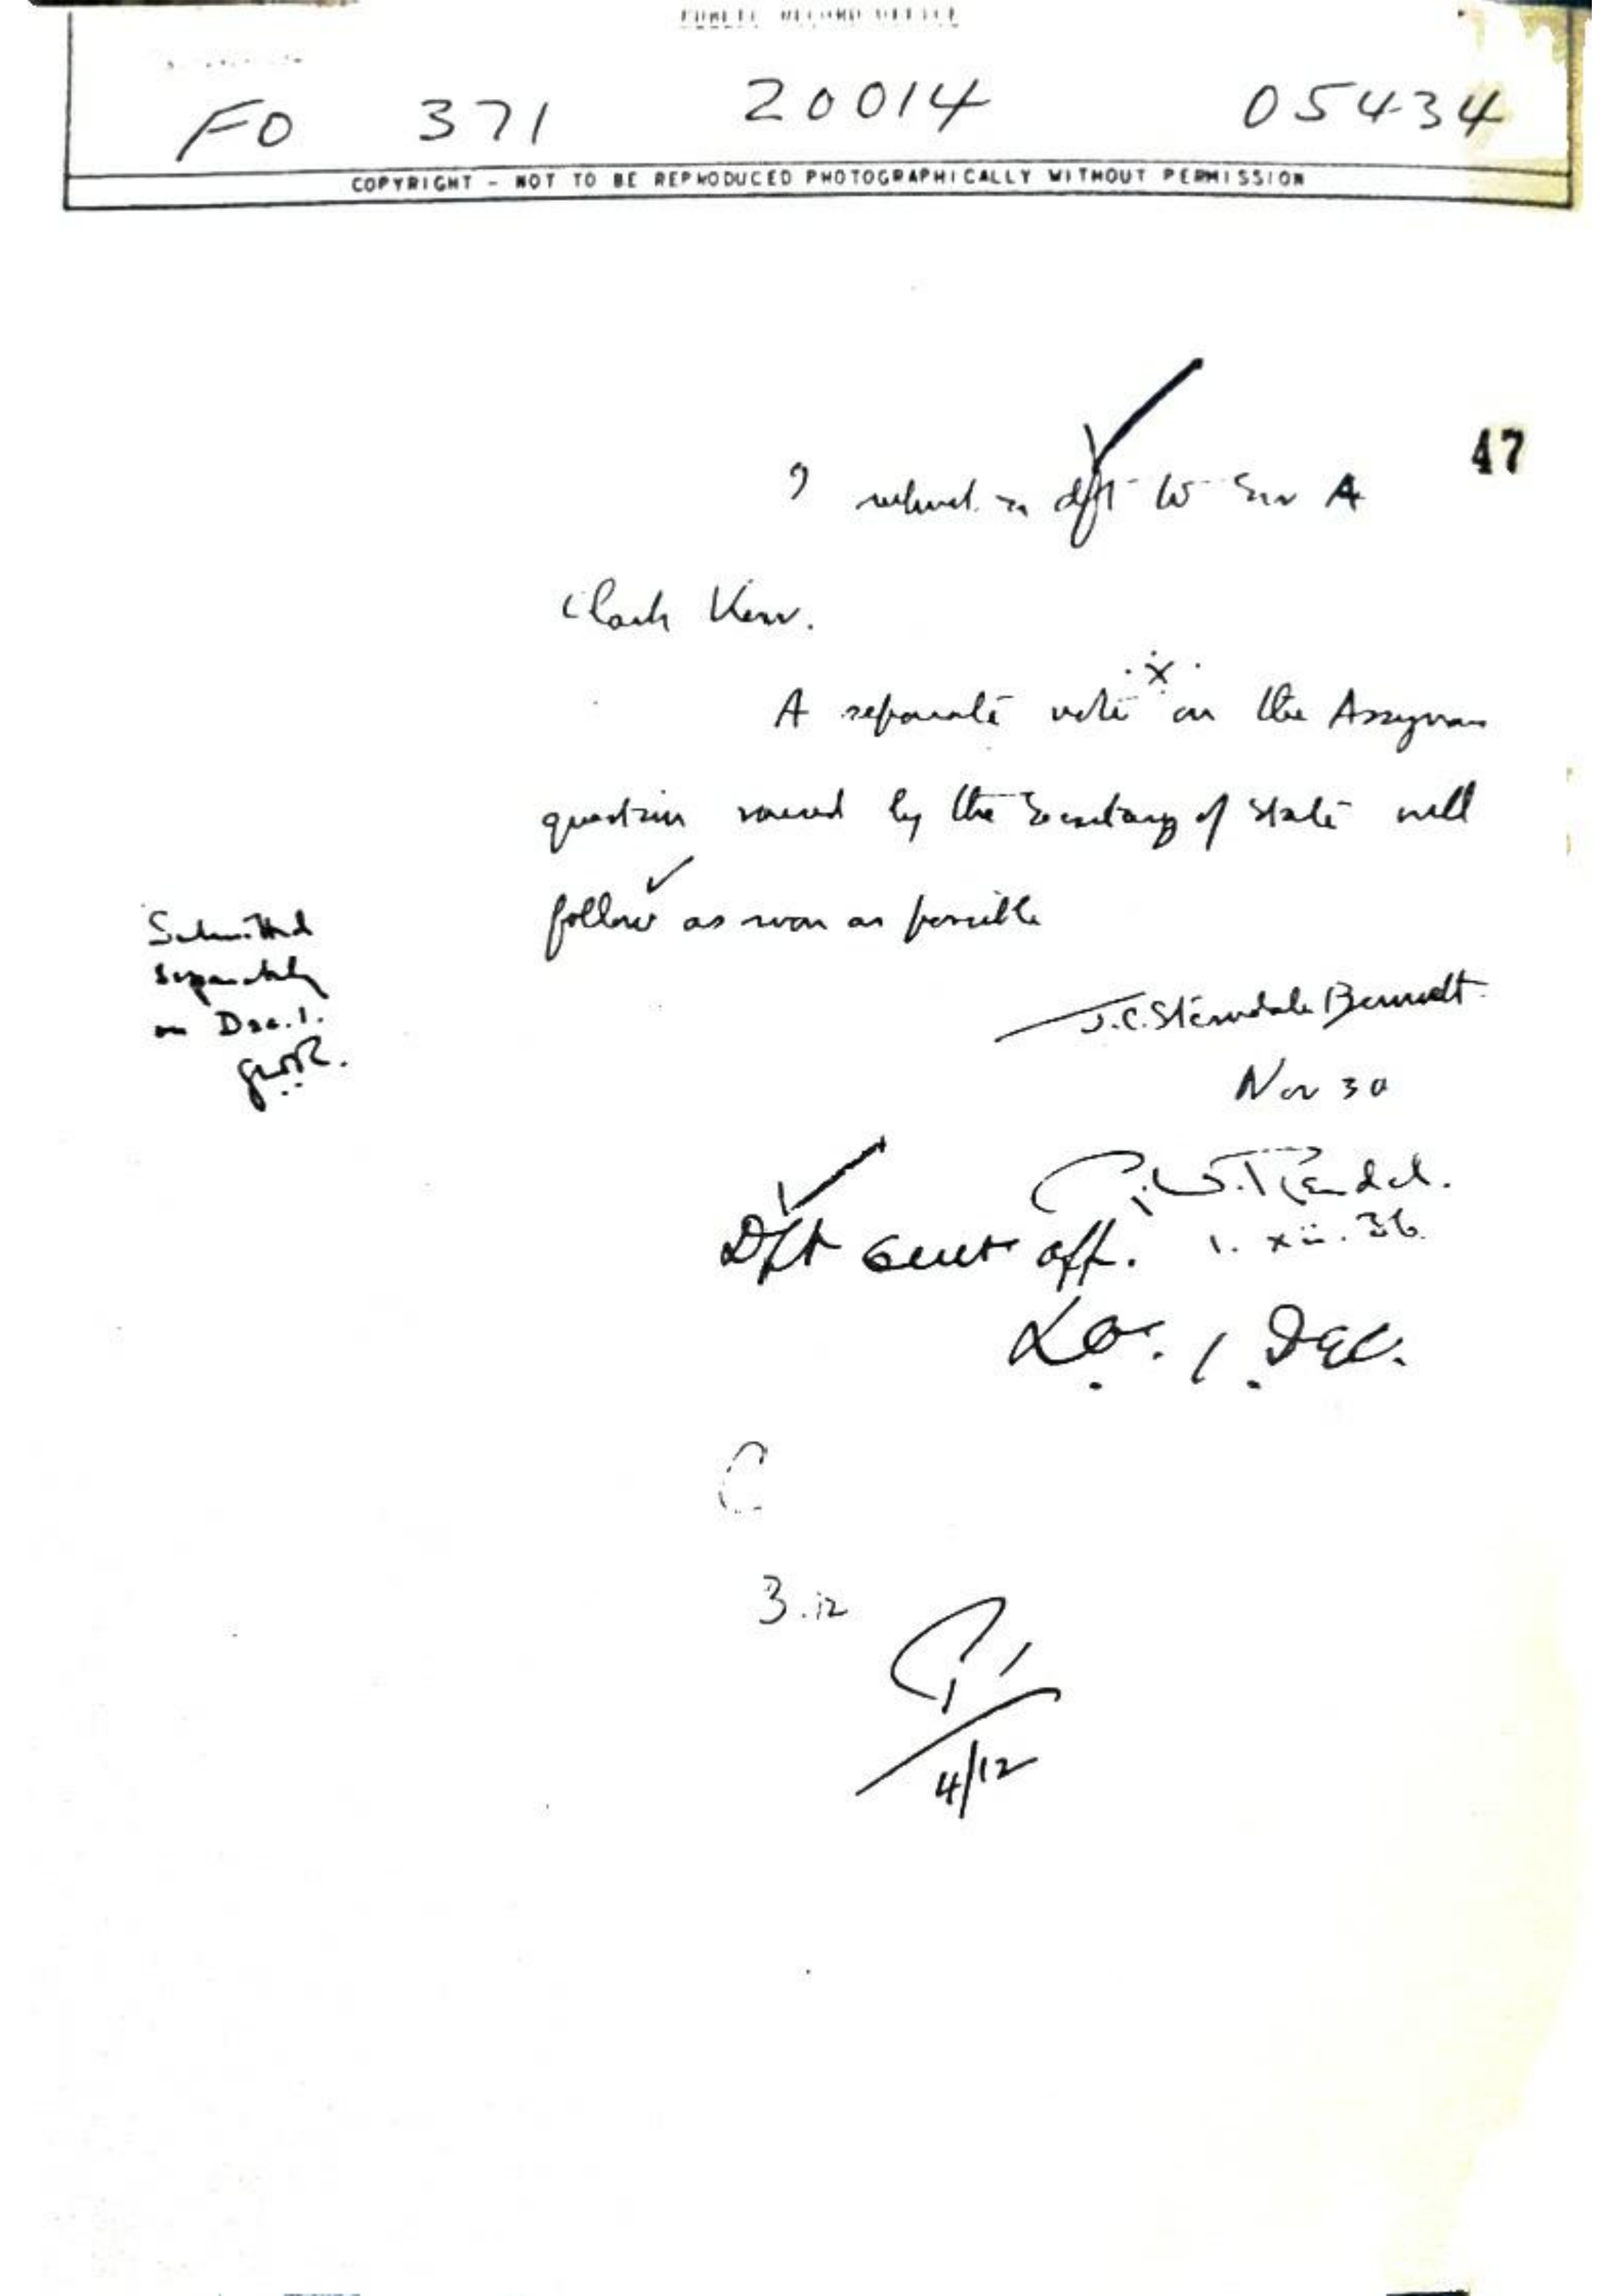 PUBLIC RECORD OFFICE
FO 371 20014 05434
COPYRIGHT - NOT TO BE REPRODUCED PHOTOGRAPHICALLY WITHOUT PERMISSION
47
? submit a dft to Sir A
Clark Kerr.
x
A separate note on the Assyrian
question raised by the Secretary of State will
follow as soon as possible
Submitted
separately
on Dec. 1.
GWR.
J.C. Sterndale Bennett
Nov 30
G.W. Rendel.
1. xii. 36.
Dft sent off.
LO. 1 Dec.
C
3.12
4/12